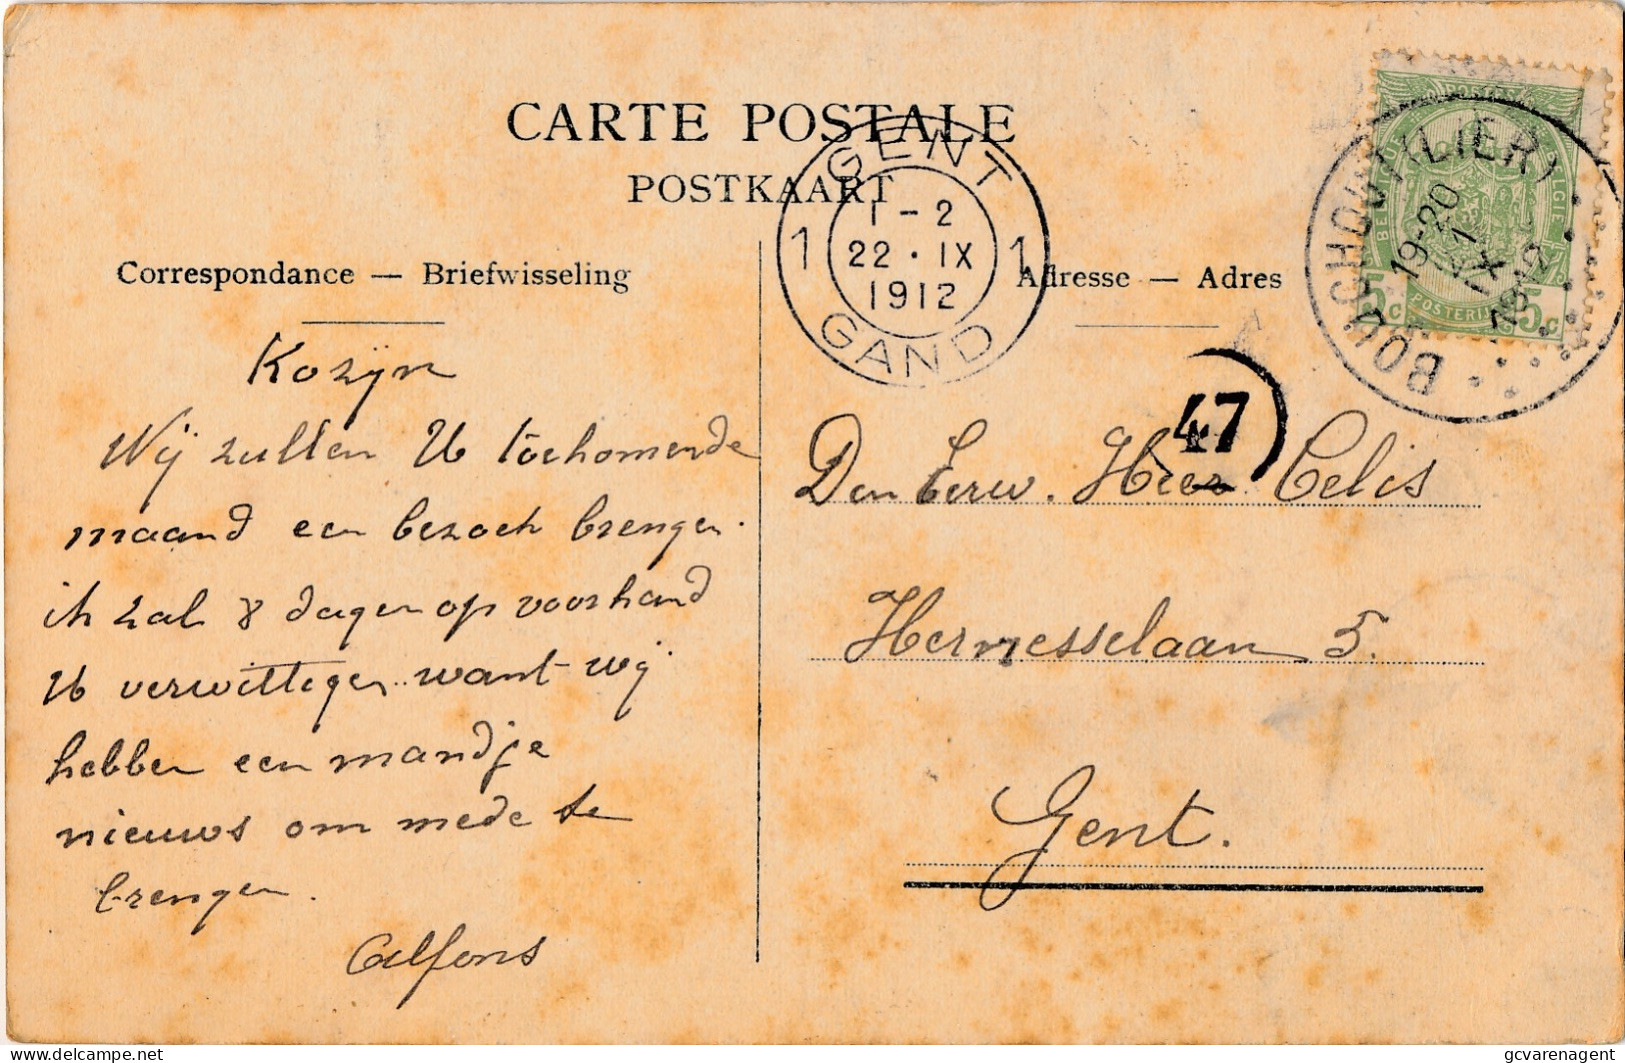 CARTE POSTALE
POSTKAART
Correspondance — Briefwisseling
Kozijn
Wij zullen U toekomende
maand een bezoek brengen.
ik zal 8 dagen op voorhand
U verwittigen want wij
hebben een mandje
nieuws om mede te
brengen.
Alfons
GENT
1 1-2 1
22·IX
1912
GAND
Adresse — Adres
BOUCHOUT (LIER)
19-20
IX
1912
BELGIQUE BELGIË
5c POSTERIJEN 5c
47
Den Eerw. Heer Celis
Hernesselaan 5.
Gent.
delcampe.net
gcvarenagent